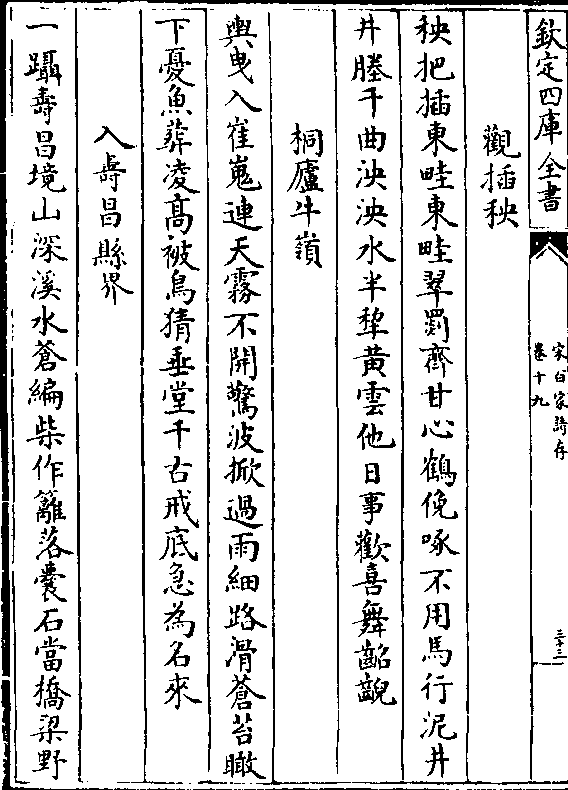 欽定四庫全書
宋百家詩存
卷十九
三十三
觀插秧
秧把插東畦東畦翠罽齊甘心鶴俛啄不用馬行泥井
井塍千曲泱泱水半犂黄雲他日事歡喜舞齠齯
桐廬牛嶺
輿曳入崔嵬連天霧不開驚波掀過雨細路滑蒼苔瞰
下憂魚葬凌髙被鳥猜垂堂千古戒底急為名來
入夀昌縣界
一躡夀昌境山深溪水蒼編柴作籬落囊石當橋梁野